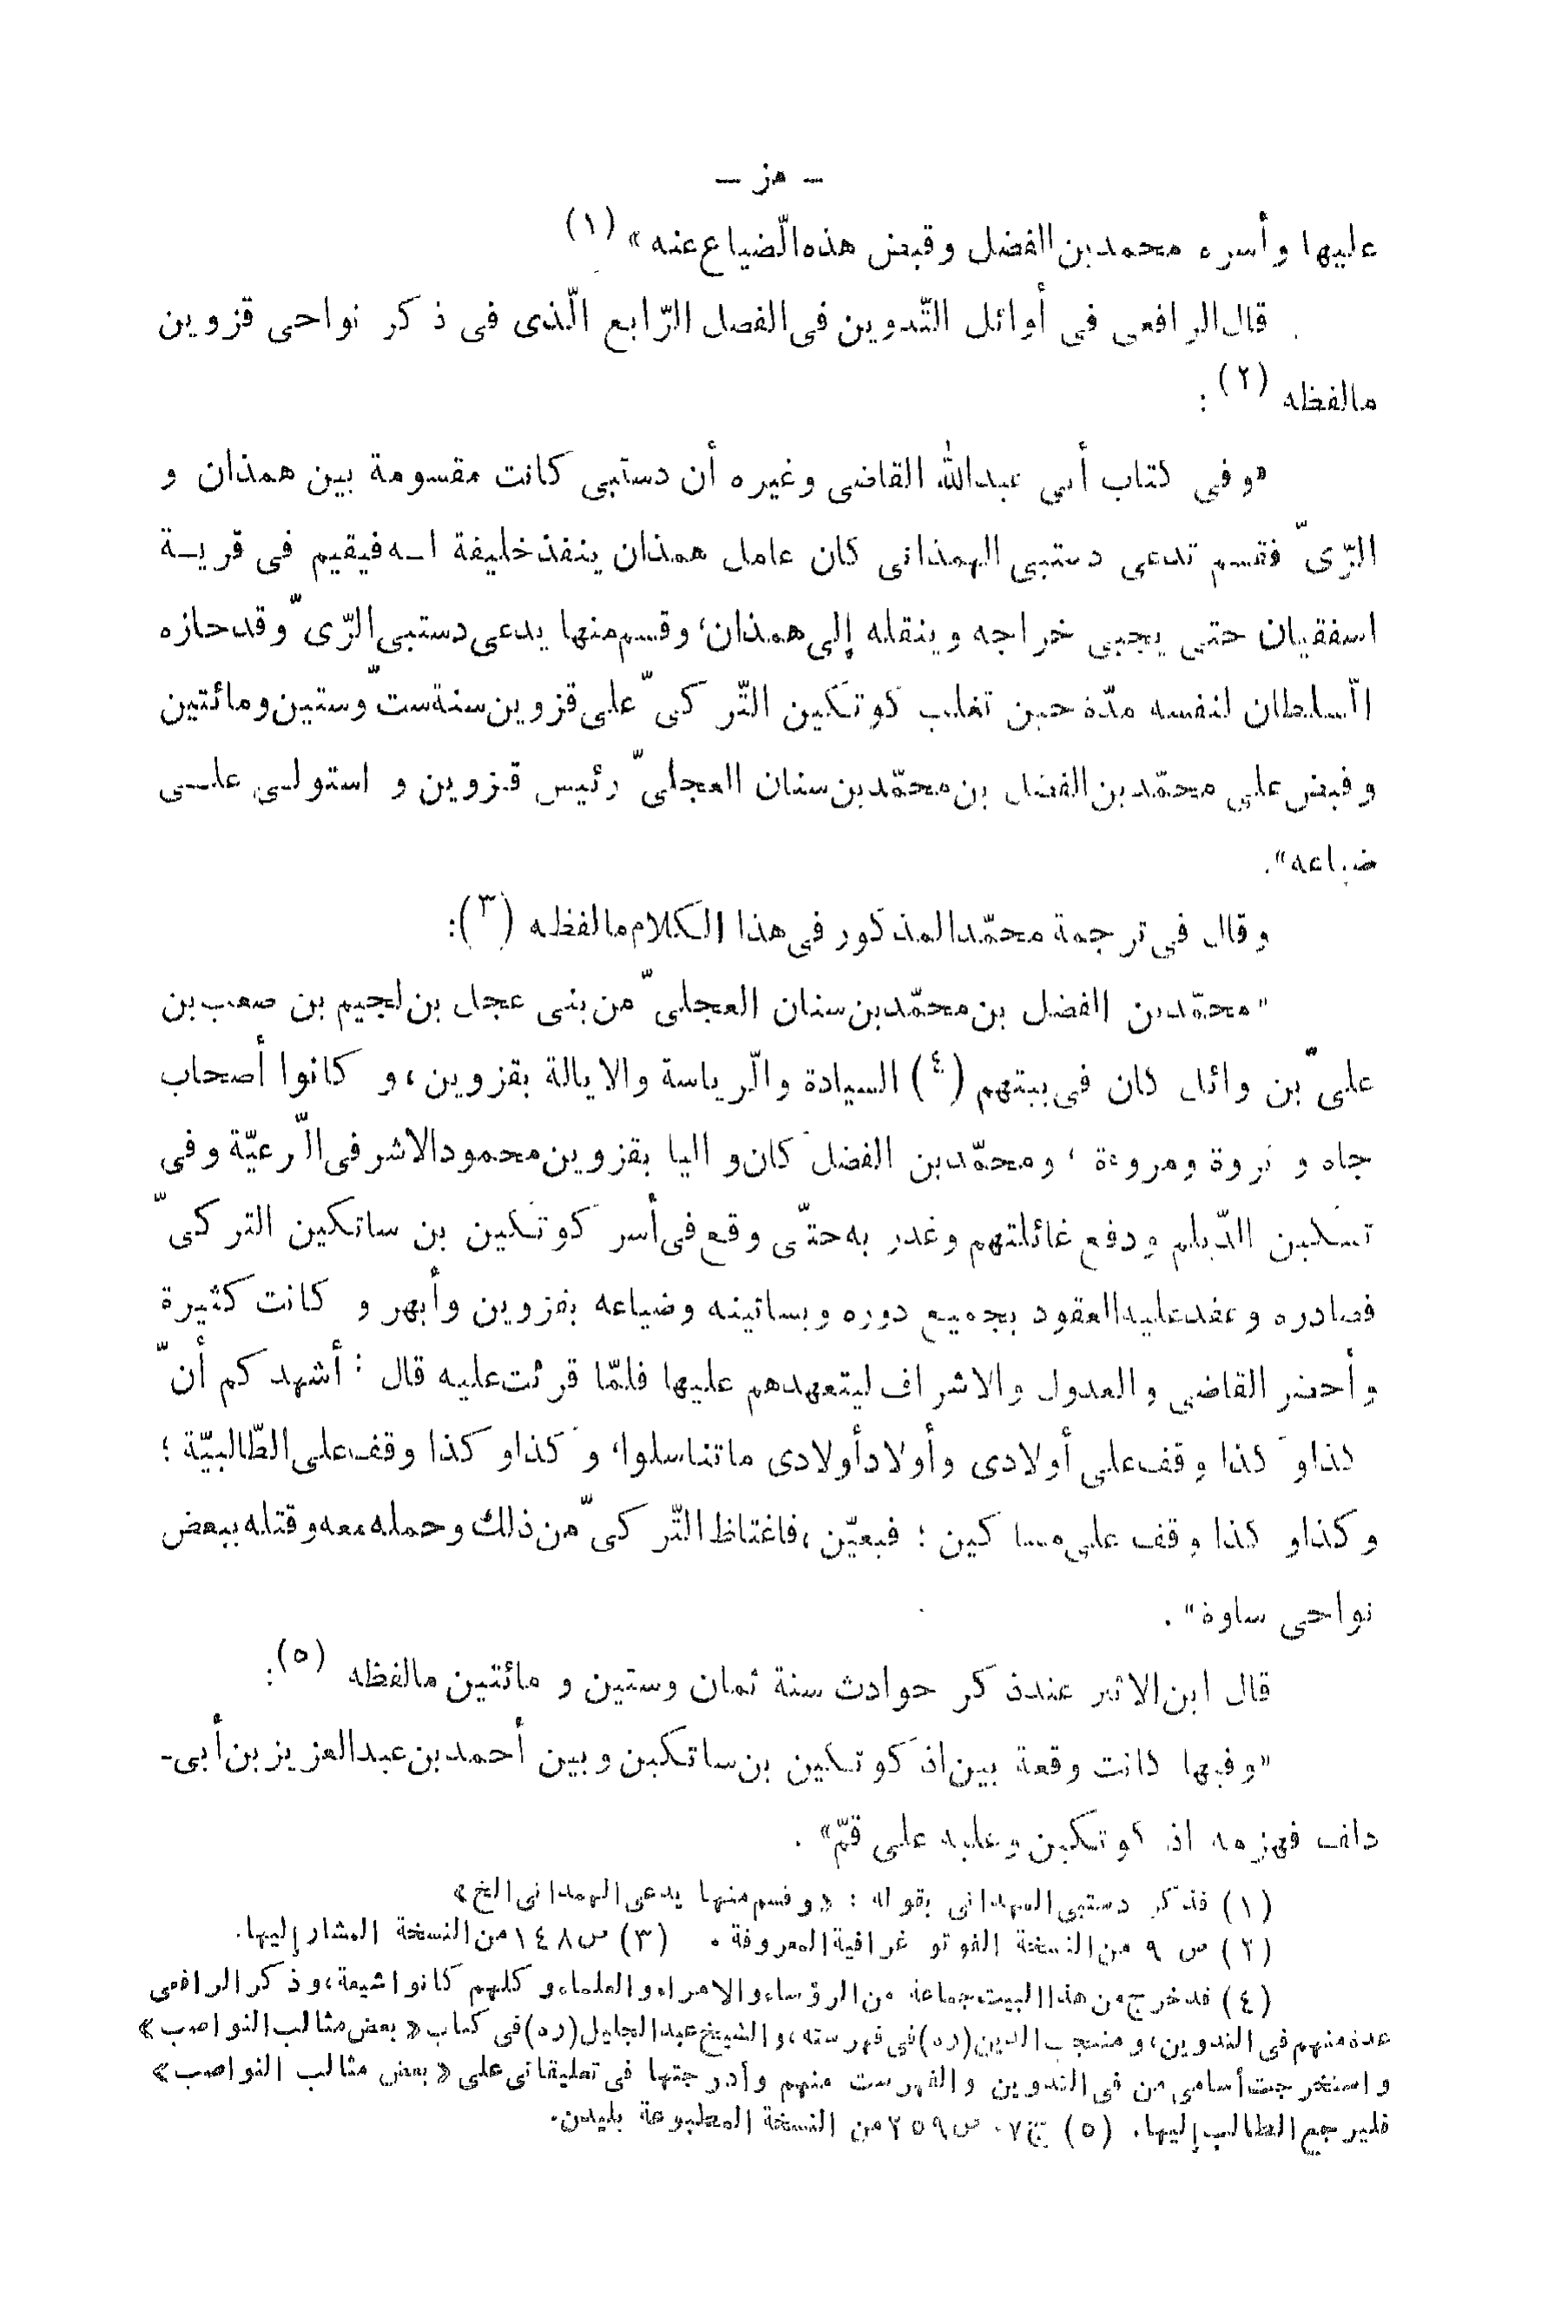 – مز –
عليها وأسره محمد بن الفضل وقبض هذه الضياع عنه» (١)
قال الرافعى فى أوائل التّدوين فى الفصل الرّابع الّذى فى ذكر نواحى قزوين
مالفظه (٢) :
«وفى كتاب أبى عبدالله القاضى وغيره أن دستبى كانت مقسومة بين همذان و
الرّىّ فقسم تدعى دستبى الهمذانى كان عامل همذان ينفذ خليفة له فيقيم فى قرية
اسفقيان حتى يجبى خراجه وينقله إلى همذان، وقسم منها يدعى دستبى الرّىّ وقد حازه
السّلطان لنفسه مدّة حين تغلب كوتكين التّركىّ على قزوين سنة ستّ وستين ومائتين
وقبض على محمّد بن الفضل بن محمّد بن سنان العجلىّ رئيس قزوين و استولى على
ضياعه».
وقال فى ترجمة محمّد المذكور فى هذا الكلام مالفظه (٣):
«محمّد بن الفضل بن محمّد بن سنان العجلىّ من بنى عجل بن لجيم بن صعب بن
علىّ بن وائل كان فى بيتهم (٤) السيادة والرّياسة والايالة بقزوين، و كانوا أصحاب
جاه و ثروة ومروءة ، ومحمّد بن الفضل كان واليا بقزوين محمود الاشر فى الرّعيّة وفى
تسكين الدّيلم ودفع غائلتهم وغدر به حتّى وقع فى أسر كوتكين بن ساتكين التركىّ
فصادره وعقد عليه العقود بجميع دوره وبساتينه وضياعه بقزوين وأبهر و كانت كثيرة
وأحضر القاضى والعدول والاشراف ليتعهدهم عليها فلمّا قرئت عليه قال : أشهدكم أنّ
كذا و كذا وقف على أولادى وأولاد أولادى ماتناسلوا، و كذا و كذا وقف على الطّالبيّة ؛
وكذا و كذا وقف على مساكين ؛ فبعيّن، فاغتاظ التّركىّ من ذلك وحمله معه وقتله ببعض
نواحى ساوة» .
قال ابن الاثير عند ذكر حوادث سنة ثمان وستين و مائتين مالفظه (٥):
«وفيها كانت وقعة بين اذ كوتكين بن ساتكين وبين أحمد بن عبدالعزيز بن أبى-
دلف فهزمه اذ كوتكين وغلبه على قمّ» .
(١) فذكر دستبى الهمدانى بقوله : «وقسم منها يدعى الهمدانى الخ»
(٢) ص ٩ من النسخة الفوتوغرافية المعروفة . (٣) ص ١٤٨ من النسخة المشار إليها.
(٤) قد خرج من هذا البيت جماعة من الرؤساء والامراء والعلماء و كلهم كانوا شيعة، وذكر الرافعى
عدة منهم فى التدوين، ومنتجب الدين (ره) فى فهرسته، والشيخ عبدالجليل (ره) فى كتاب «بعض مثالب النواصب»
واستخرجت أسامى من فى التدوين والفهرست منهم وأدرجتها فى تعليقاتى على «بعض مثالب النواصب»
فليرجع الطالب إليها. (٥) ج ٧، ص ٢٥٩ من النسخة المطبوعة بليدن.